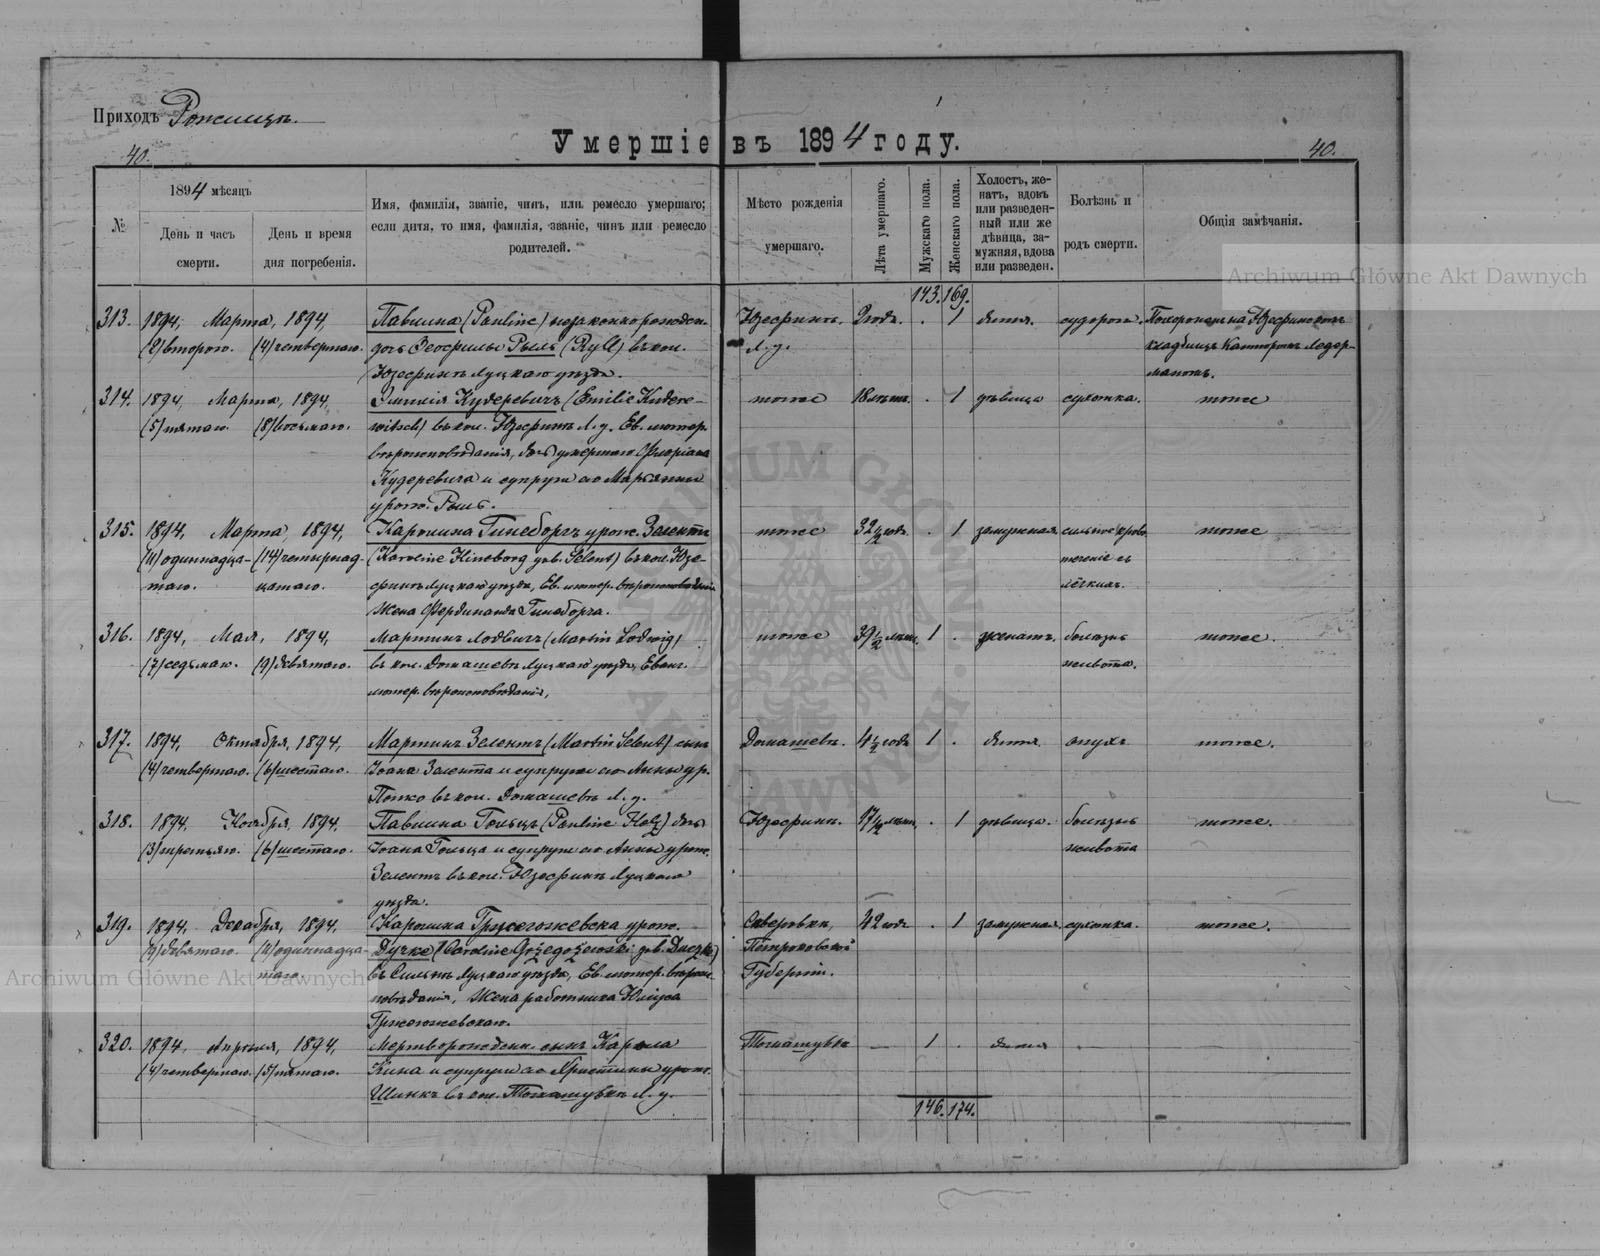 Приходъ Рожищъ.
Умершіе въ 1894 году.
40.
40.
№
1894 мѣсяцъ
День и часъ смерти.
День и время дня погребенія.
Имя, фамилія, званіе, чинъ, или ремесло умершаго;
если дитя, то имя, фамилія, званіе, чинъ или ремесло
родителей.
Мѣсто рожденія
умершаго.
Лѣта умершаго.
Мужскаго пола.
Женскаго пола.
Холостъ, же-
натъ, вдовъ
или разведен-
ный или же
дѣвица, за-
мужняя, вдова
или разведен.
Болѣзнь и
родъ смерти.
Общія замѣчанія.
Archiwum Główne Akt Dawnych
143. 169.
313. 1894, Марта, 1894, Павлина (Pauline) незаконнорожден. Юзефинъ 2 года. . 1 дитя. судороги. Похоронена на Юзефинскомъ
(2) второго. (4) четвертаго. дочь Теофилы Рыль (Ryll) въ кол. Л. у. кладбищѣ Канторомъ Ледер-
Юзефинъ Луцкаго уѣзда. маномъ.
314. 1894, Марта, 1894, Эмилія Кудеревичъ (Emilie Kudere- тоже 18 лѣтъ. . 1 дѣвица сухотка. тоже
(5) пятаго. (8) восьмаго. witsch) въ кол. Юзефинъ Л. у. Ев. лютер.
вѣроисповѣданія, дочь умершаго Флоріана
Кудеревича и супруги его Марьянны
урож. Рыль.
315. 1894, Марта, 1894, Каролина Гинеборгъ урож. Зелентъ тоже 32 1/2 года. . 1 замужная. сильное крово- тоже
(11) одиннадца- (14) четырнад- (Karoline Hineborg geb. Selent) въ кол. Юзе- теченіе съ
таго. цатаго. финъ Луцкаго уѣзда, Ев. лютер. вѣроисповѣданія лёгкихъ.
Жена Фердинанда Гинеборга.
316. 1894, Мая, 1894, Мартинъ Лодвигъ (Martin Lodwig) тоже 39 1/2 лѣтъ. 1 . женатъ. болѣзнь тоже.
(7) седьмаго. (9) девятаго. въ кол. Домашевъ Луцкаго уѣзда, Еванг. живота.
лютер. вѣроисповѣданія,
317. 1894, Октября, 1894, Мартинъ Зелентъ (Martin Selent) сынъ Домашевъ. 4 1/2 года 1 . дитя. опухъ тоже.
(4) четвертаго. (6) шестаго. Іоана Зелента и супруги его Анны ур.
Попко въ кол. Домашевъ Л. у.
318. 1894, Ноября, 1894, Павлина Гольцъ (Pauline Holz) дочь Юзефинъ. 17 1/2 лѣтъ. . 1 дѣвица. болѣзнь тоже.
(3) третьяго. (6) шестаго. Іоана Гольца и супруги его Анны урож. живота
Зелентъ въ кол. Юзефинъ Луцкаго
уѣзда.
319. 1894, Декабря, 1894, Каролина Гржегожевска урож. 42 года . 1 замужная. сухотка. тоже.
(9) девятаго. (11) одиннадца- въ Сильнѣ Луцкаго уѣзда, Ев. лютер. вѣроис- Петроковской
таго. повѣданія, Жена работника Юліуса Губерніи.
Гржегожевскаго.
Archiwum Główne Akt Dawnych
320. 1894, Апрѣля, 1894, Мертворожден. сынъ Карола — 1 . дитя .
(4) четвертаго. (5) пятаго. Кина и супруги его Христины урож.
Шинкъ въ кол. Л. у.
146. 174.